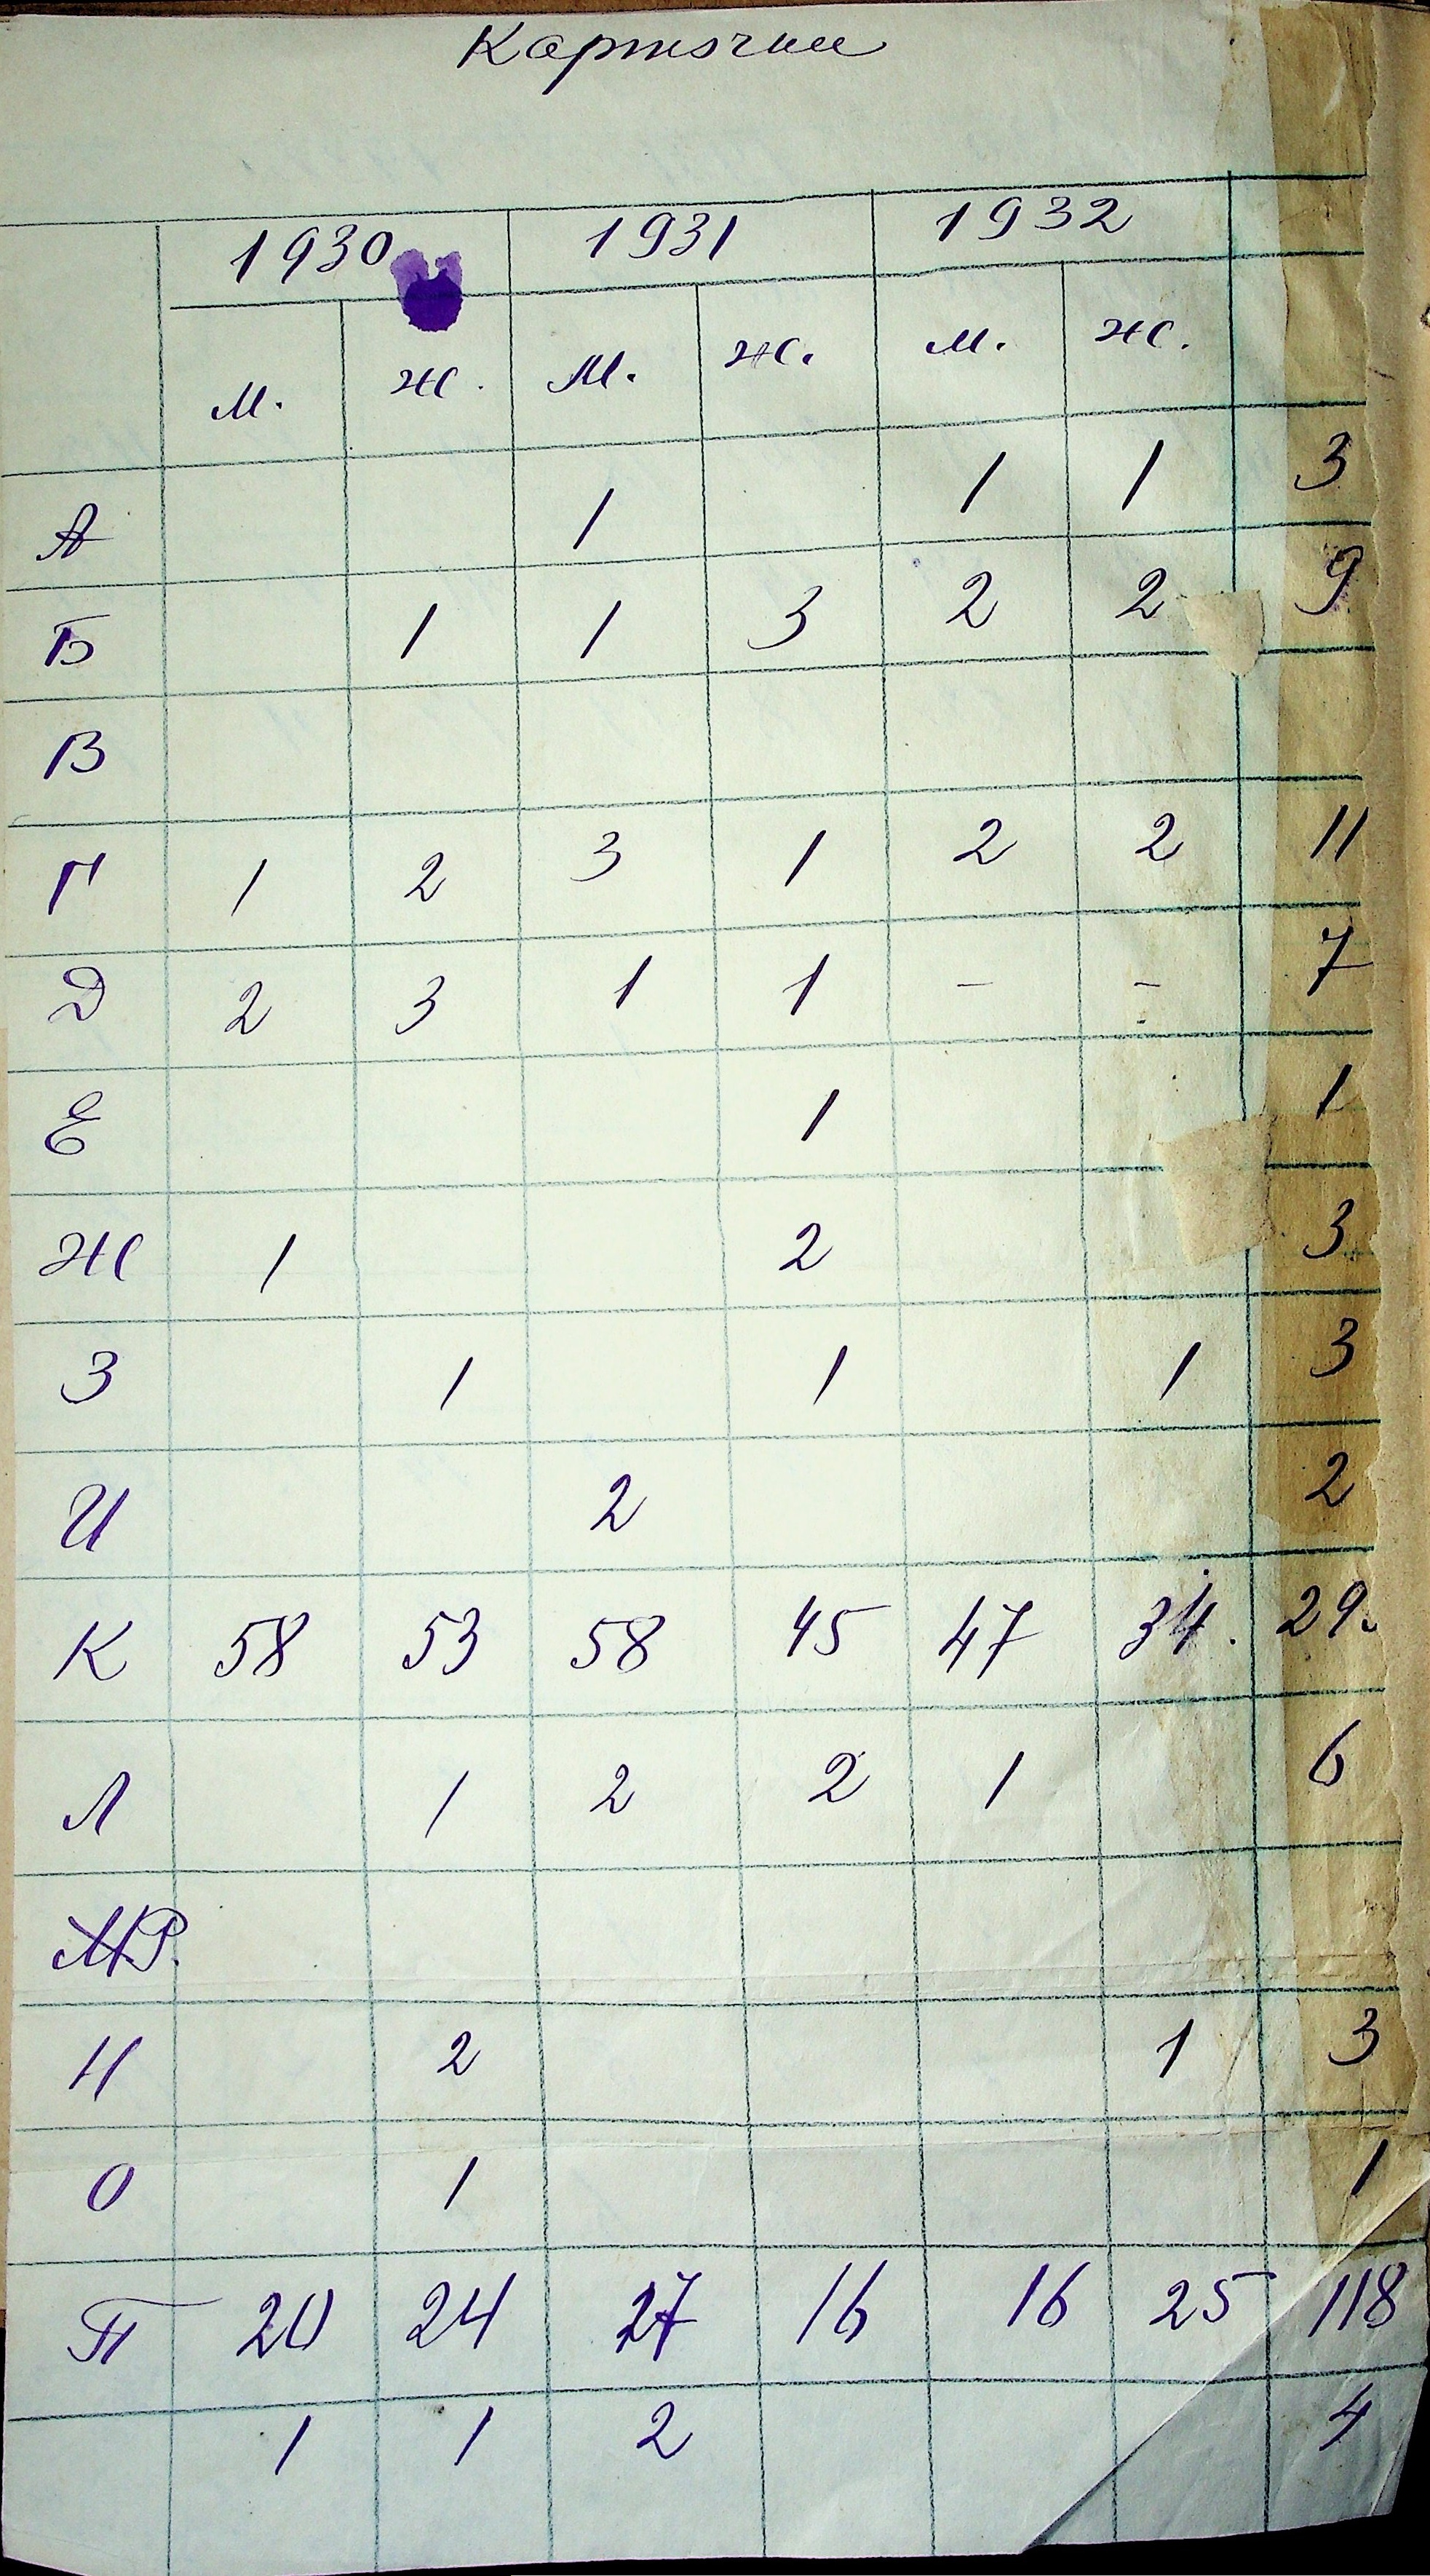 Карточки
1930 1931 1932
м. ж. м. ж. м. ж.
А 1 1 1 3
Б 1 1 3 2 2 9
В
Г 1 2 3 1 2 2 11
Д 2 3 1 1 – – 7
Е 1 1
Ж 1 2 3
З 1 1 1 3
И 2 2
К 58 53 58 45 47 34. 29
Л 1 2 2 1 6
Н 2 1 3
О 1 1
П 20 24 27 16 16 25 118
1 1 2 4